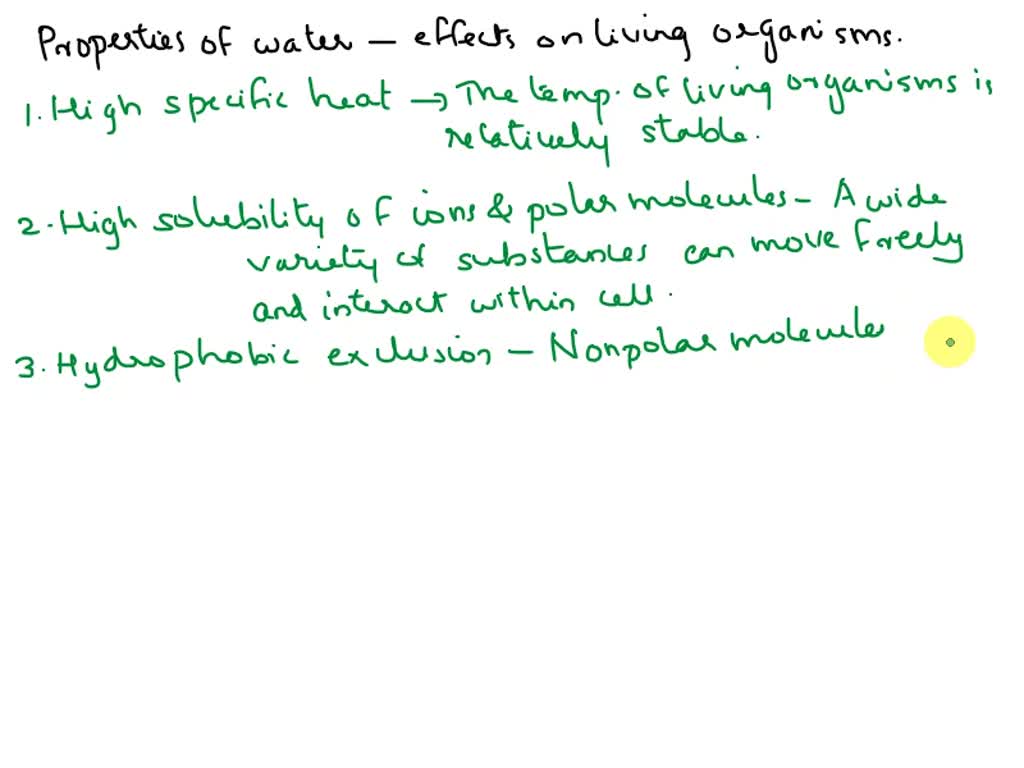 Properties of water – effects on living organisms.
1. High specific heat → The temp. of living organisms is
relatively stable.
2. High solubility of ions & polar molecules – A wide
variety of substances can move freely
and interact within cell.
3. Hydrophobic exclusion – Nonpolar molecule